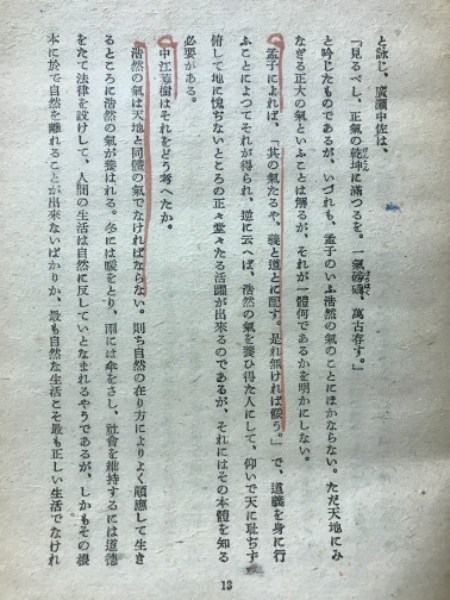 と詠じ、廣瀬中佐は、
「見るべし、正氣の乾坤に滿つるを。一氣磅礴、萬古存す。」
と吟じたものであるが、いづれも、孟子のいふ浩然の氣のことにほかならない。たゞ天地にみ
なぎる正大の氣といふことは解るが、それが一體何であるかを明かにしない。
孟子によれば、「其の氣たるや、義と道とに配す。是れ無ければ餒う。」で、道義を身に行
ふことによつてそれが得られ、逆に云へば、浩然の氣を養ひ得た人にして、仰いで天に耻ぢず
俯して地に愧ぢないところの正々堂々たる活躍が出來るのであるが、それにはその本體を知る
必要がある。
中江藤樹はそれをどう考へたか。
浩然の氣は天地と同體の氣でなければならない。則ち自然の在り方によりよく順應して生き
るところに浩然の氣が養はれる。冬には暖をとり、雨には傘をさし、社會を維持するには道德
をたて法律を設けして、人間の生活は自然に反していとなまれるやうであるが、しかもその根
本に於て自然を離れることが出來ないばかりか、最も自然な生活こそ最も正しい生活でなけれ
13